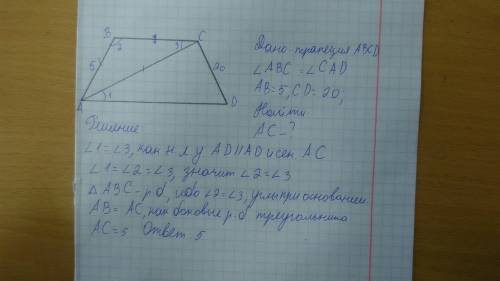 B
2
3
C
5
20
1
A
D
Дано трапеция ABCD
∠ABC = ∠CAD
AB=5, CD=20,
Найти
AC - ?
Решение:
∠1=∠3, как н.л.у AD||AD и сек AC
∠1=∠2=∠3, значит ∠2=∠3
△ABC - р.б, ибо ∠2=∠3, углы при основании.
AB = AC, как боковые р.б треугольника
AC=5 Ответ 5